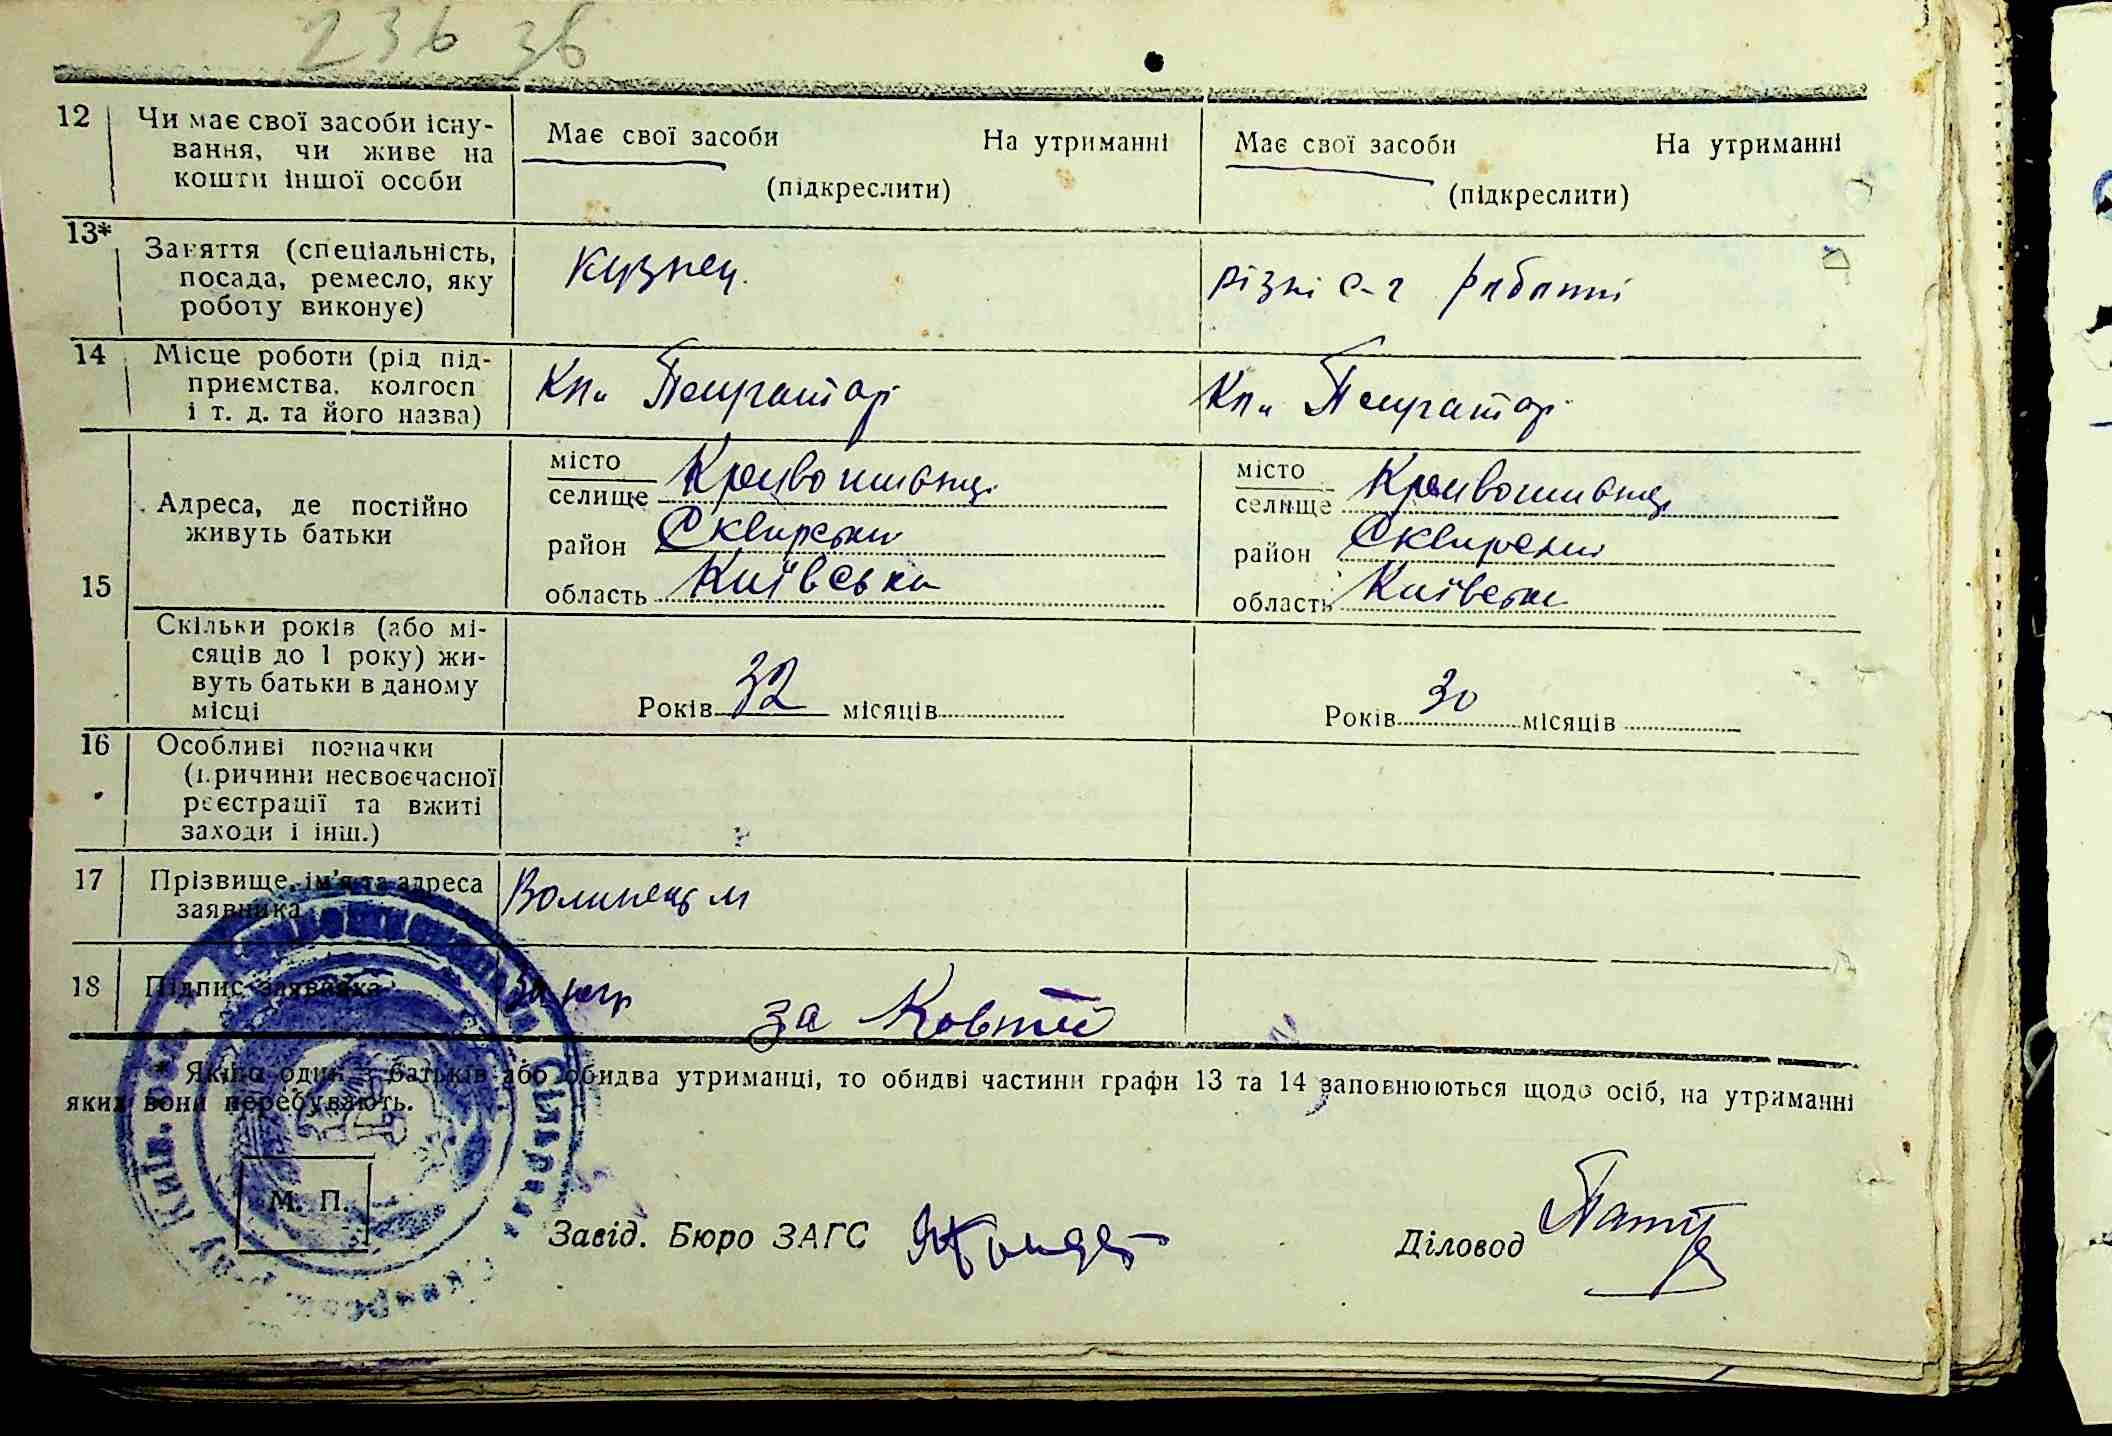 236 36
12 Чи має свої засоби існу-
вання, чи живе на
кошти іншої особи
Має свої засоби На утриманні
(підкреслити)
Має свої засоби На утриманні
(підкреслити)
13* Заняття (спеціальність,
посада, ремесло, яку
роботу виконує)
кузнец.
різні с-г работи
14 Місце роботи (рід під-
приємства, колгосп
і т. д. та його назва)
15 Адреса, де постійно
живуть батьки
місто
селище Кривошиївці
район Сквирськи
область Київська
місто
селище Кривошиївці
район Сквирськи
область Київська
Скільки років (або мі-
сяців до 1 року) жи-
вуть батьки в даному
місці
Років 32 місяців
Років 30 місяців
16 Особливі позначки
(причини несвоєчасної
реєстрації та вжиті
заходи і інш.)
17 Прізвище, ім'я та адреса
заявника
Волинець М
18 Підпис заявника
за Ковтий
* Якщо один з батьків або обидва утриманці, то обидві частини графи 13 та 14 заповнюються щодо осіб, на утриманні
яких вони перебувають.
М. П.
Завід. Бюро ЗАГС
Діловод